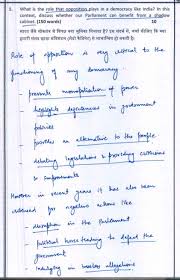 3. What is the role that opposition plays in a democracy like India? In this
context, discuss whether our Parliament can benefit from a shadow
cabinet. (150 words) 10
भारत जैसे लोकतंत्र में विपक्ष क्या भूमिका निभाता है? इस संदर्भ में, चर्चा कीजिए कि क्या
हमारी संसद
Role of opposition is very critical to the
functioning of any democracy.
- prevents monopolisation of power
- highlights deficiencies in government
policies
- provides an alternative to the people
- debating legislations & providing criticisms
& improvements
However in recent years it has also been
criticised for negative actions like
- disruption in the Parliament
- political horse trading to defeat the
government
- indulging in baseless allegations